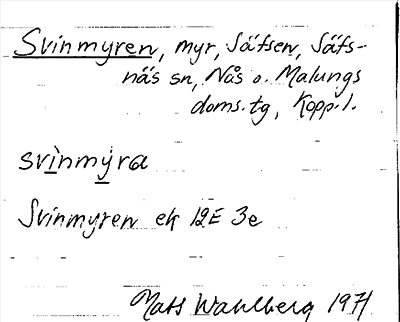 Svinmyren, myr, Säfsen, Säfs-
näs sn, Nås o. Malungs
doms.tg, Kopp. l.
svìnmýra
Svinmyren ek 12E 3e
Mats Wahlberg 1971